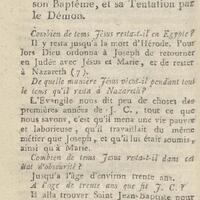 son Baptême, et sa Tentation par
le Démon.
Combien de tems Jésus resta-t-il en Egypte ?
Il y resta jusqu'à la mort d'Hérode. Pour
lors Dieu ordonna à Joseph de retourner
en Judée avec Jésus et Marie, et de rester
à Nazareth (7).
De quelle manière Jésus vécut-il pendant tout
le tems qu'il resta à Nazareth ?
L'Evangile nous dit peu de choses des
premières années de J. C., tout ce que
nous savons, c'est qu'il mena une vie pauvre
et laborieuse, qu'il travaillait du même
métier que Joseph, et qu'il lui était soumis,
ainsi qu'à Marie.
Combien de tems Jesus resta-t-il dans cet
état d'obscurité ?
Jusqu'à l'âge d'environ trente ans.
A l'âge de trente ans que fit J. C. ?
Il alla trouver Saint Jean-Baptiste pour